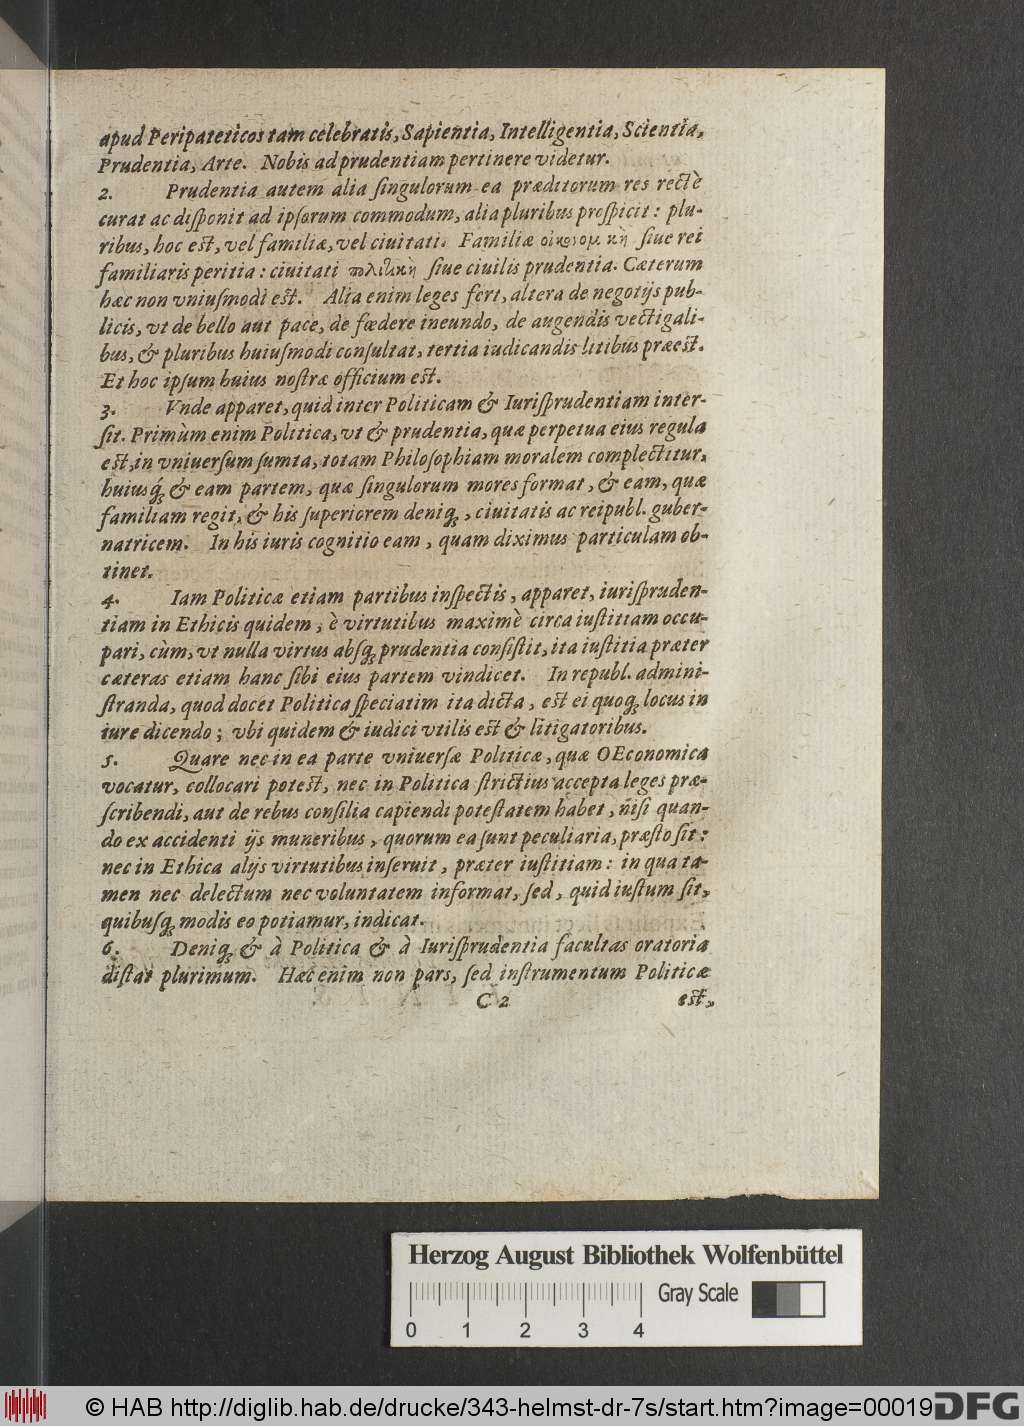 apud Peripateticos tam celebratis, Sapientia, Intelligentia, Scientia,
Prudentia, Arte. Nobis ad prudentiam pertinere videtur.
2. Prudentia autem alia ſingulorum ea præditorum res rectè
curat ac diſponit ad ipſorum commodum, alia pluribus proſpicit: plu-
ribus, hoc eſt, vel familiæ, vel ciuitati. Familiæ οἰκονομ κὴ ſiue rei
familiaris peritia: ciuitati πολιτικὴ ſiue ciuilis prudentia. Cæterum
hæc non vniuſmodi eſt. Alia enim leges fert, altera de negotijs pub-
licis, vt de bello aut pace, de fœdere ineundo, de augendis vectigali-
bus, & pluribus huiuſmodi conſultat, tertia iudicandis litibus præeſt.
Et hoc ipſum huius noſtræ officium eſt.
3. Vnde apparet, quid inter Politicam & Iuriſprudentiam inter-
ſit. Primùm enim Politica, vt & prudentia, quæ perpetua eius regula
eſt, in vniuerſum ſumta, totam Philoſophiam moralem complectitur,
huiusq́; & eam partem, quæ ſingulorum mores format, & eam, quæ
familiam regit, & his ſuperiorem deniq;, ciuitatis ac reipubl. guber-
natricem. In his iuris cognitio eam, quam diximus particulam ob-
tinet.
4. Iam Politicæ etiam partibus inſpectis, apparet, iuriſpruden-
tiam in Ethicis quidem, è virtutibus maximè circa iuſtitiam occu-
pari, cùm, vt nulla virtus abſq; prudentia conſiſtit, ita iuſtitia præter
cæteras etiam hanc ſibi eius partem vindicet. In republ. admini-
ſtranda, quod docet Politica ſpeciatim ita dicta, eſt ei quoq; locus in
iure dicendo; vbi quidem & iudici vtilis eſt & litigatoribus.
5. Quare nec in ea parte vniuerſæ Politicæ, quæ OEconomica
vocatur, collocari poteſt, nec in Politica ſtrictius accepta leges præ-
ſcribendi, aut de rebus conſilia capiendi poteſtatem habet, niſi quan-
do ex accidenti ijs muneribus, quorum ea ſunt peculiaria, præſto ſit:
nec in Ethica alijs virtutibus inſeruit, præter iuſtitiam: in qua ta-
men nec delectum nec voluntatem informat, ſed, quid iuſtum ſit,
quibuſq; modis eo potiamur, indicat.
6. Deniq; & à Politica & à Iuriſprudentia facultas oratoria
diſtat plurimum. Hæc enim non pars, ſed inſtrumentum Politicæ
C 2 eſt,
Herzog August Bibliothek Wolfenbüttel
Gray Scale
0 1 2 3 4
© HAB http://diglib.hab.de/drucke/343-helmst-dr-7s/start.htm?image=00019
DFG